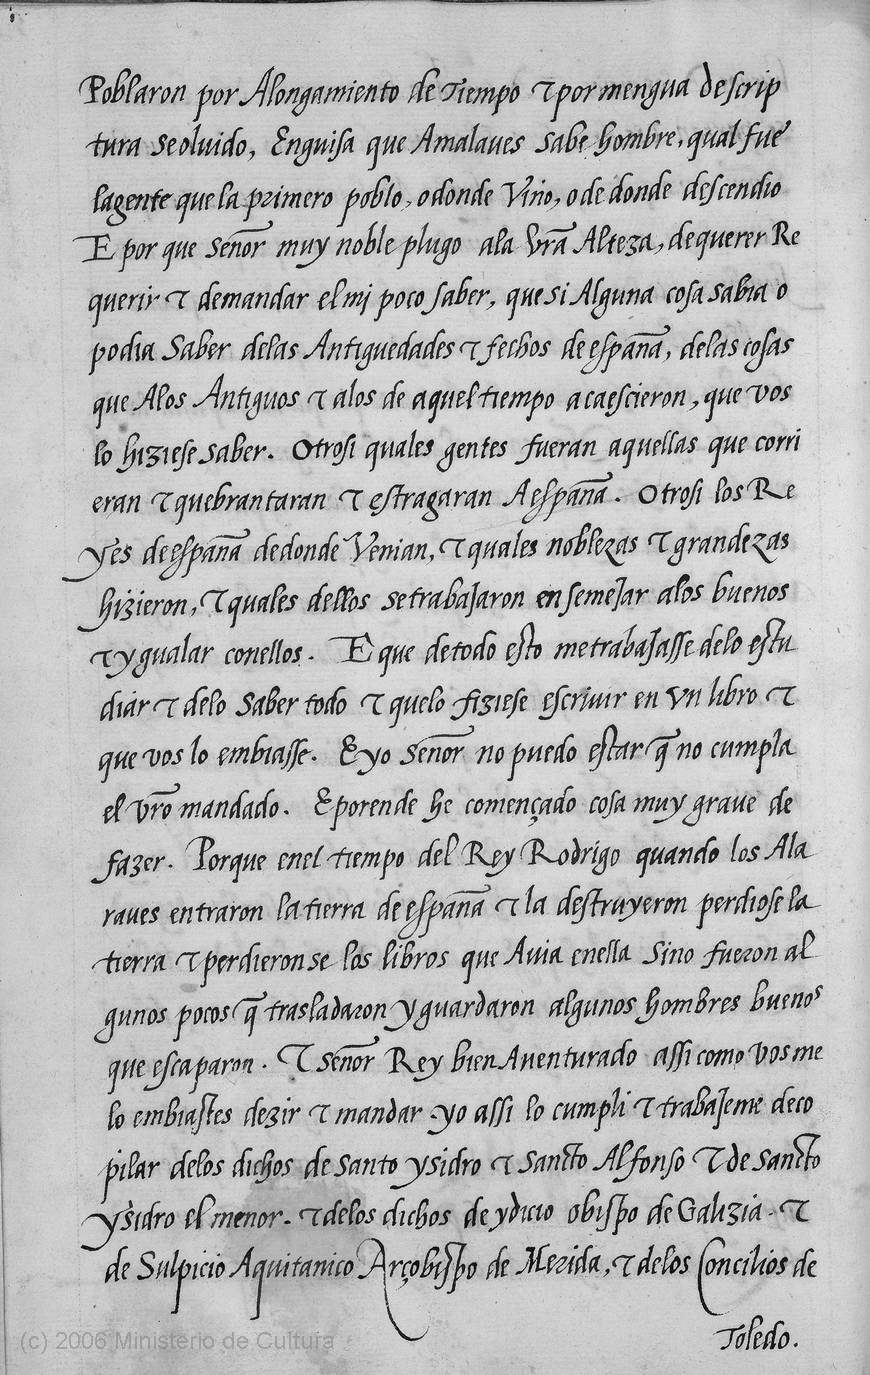 Poblaron por Alongamiento de Tiempo τ por mengua de scrip
tura se oluido, Enguisa que Amalaves sabe hombre, qual fue
la gente que la primero poblo, o donde Vino, o de donde descendio
E por que señor muy noble plugo ala Vrã Alteza, de querer Re
querir τ demandar el mj poco saber, que si Alguna cosa sabia o
podia Saber delas Antiguedades τ fechos de españa, delas cosas
que Alos Antiguos τ alos de aquel tiempo acaescieron, que vos
lo hiziese saber. Otrosi quales gentes fueran aquellas que corri
eran τ quebrantaran τ estragaran A españa. Otrosi los Re
yes de españa de donde Venian, τ quales noblezas τ grandezas
hizieron, τ quales dellos se trabajaron en semejar alos buenos
τ ygualar conellos. E que de todo esto me trabajasse delo estu
diar τ delo Saber todo τ quelo fiziese escriuir en Vn libro τ
que vos lo embiasse. E yo Señor no puedo estar q̃ no cumpla
el vrõ mandado. E porende he començado cosa muy graue de
fazer. Porque enel tiempo del Rey Rodrigo quando los Ala
raues entraron la tierra de españa τ la destruyeron perdiose la
tierra τ perdieronse los libros que Auia enella Sino fueron al
gunos pocos q̃ trasladaron y guardaron algunos hombres buenos
que escaparon. τ Señor Rey bien Auenturado assi como vos me
lo embiastes dezir τ mandar yo assi lo cumpli τ trabajeme de co
pilar delos dichos de santo ysidro τ sancto Alfonso τ de sancto
ysidro el menor. τ delos dichos de ydicio obispo de Galizia. τ
de Sulpicio Aquitanico Arçobispo de Merida, τ delos Concilios de
Toledo.
(c) 2006 Ministerio de Cultura